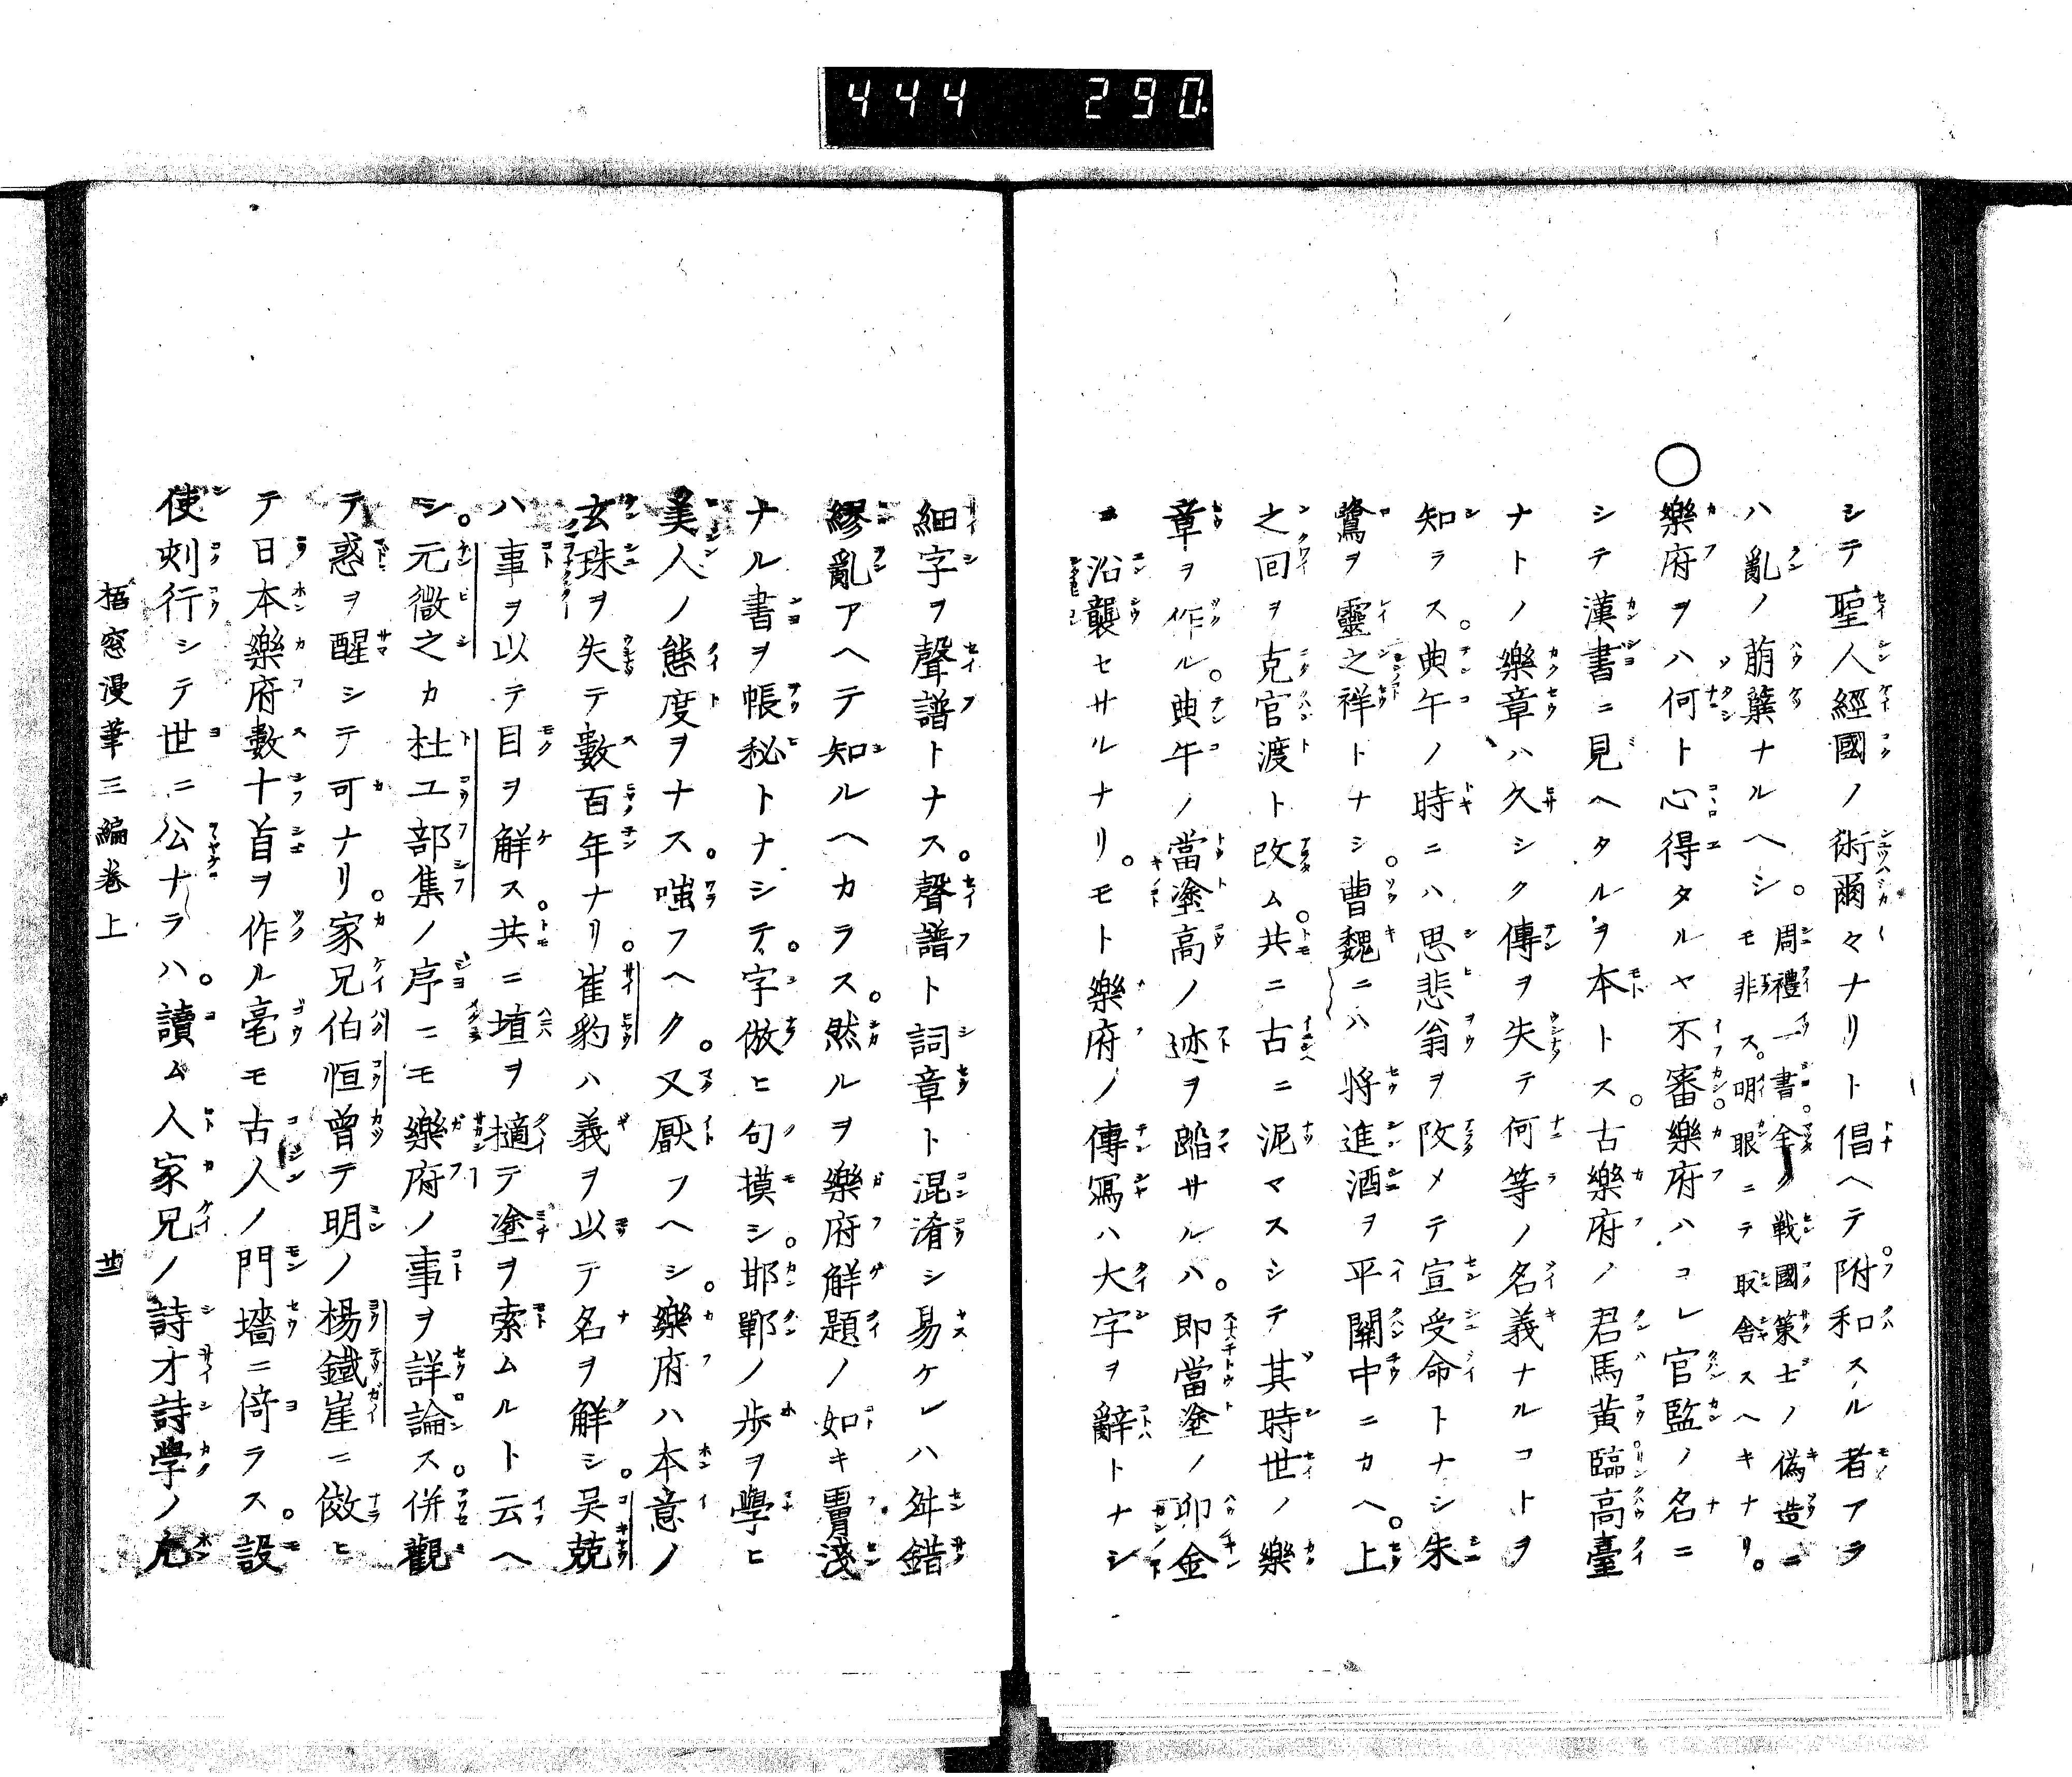 444 290
シテ聖人經國ノ術爾々ナリト倡ヘテ附和スル者アラ
ハ亂ノ萠蘖ナルヘシ。周禮一書全ク戰國策士ノ偽造ニモ非ス。明眼ニテ取舍スヘキナリ。
○樂府ヲハ何ト心得タルヤ不審。樂府ハコレ官監ノ名ニ
シテ漢書ニ見ヘタルヲ本トス。古樂府ノ君馬黄臨高臺
ナトノ樂章ハ久シク傳ヲ失テ何等ノ名義ナルコトヲ
知ラス。典午ノ時ニハ思悲翁ヲ改メテ宣受命トナシ朱
鷺ヲ靈之祥トナシ。曹魏ニハ將進酒ヲ平關中ニカヘ。上
之回ヲ克官渡ト改ム。共ニ古ニ泥マスシテ其時世ノ樂
章ヲ作ル。典午ノ當塗高ノ迹ヲ蹈サルハ。即當塗ノ卯金
ニ沿襲セサルナリ。モト樂府ノ傳寫ハ大字ヲ辭トナシ
細字ヲ聲譜トナス。聲譜ト詞章ト混淆シ易ケレハ舛錯
繆亂アヘテ知ルヘカラス。然ルヲ樂府解題ノ如キ膚淺
ナル書ヲ帳秘トナシテ。字倣ヒ句摸シ。邯鄲ノ歩ヲ學ヒ
美人ノ態度ヲナス。嗤フヘク。又厭フヘシ。樂府ハ本意ノ
玄珠ヲ失テ數百年ナリ。崔豹ハ義ヲ以テ名ヲ解シ。吴兢
ハ事ヲ以テ目ヲ解ス。共ニ埴ヲ擿テ塗ヲ索ムルト云ヘ
シ。元微之カ杜工部集ノ序ニモ樂府ノ事ヲ詳論ス。併觀
テ惑ヲ醒シテ可ナリ。家兄伯恒曾テ明ノ楊鐵崖ニ傚ヒ
テ日本樂府數十首ヲ作ル毫モ古人ノ門墻ニ倚ラス。設
使刻行シテ世ニ公ナラハ。讀ム人家兄ノ詩才詩學ノ凢
梧窓漫筆三編卷上 廿二